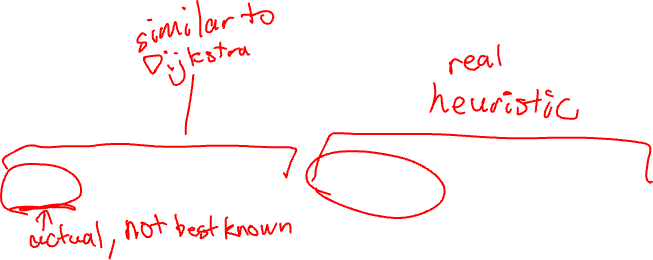 similar to
Dijkstra
real
heuristic
actual, not best known